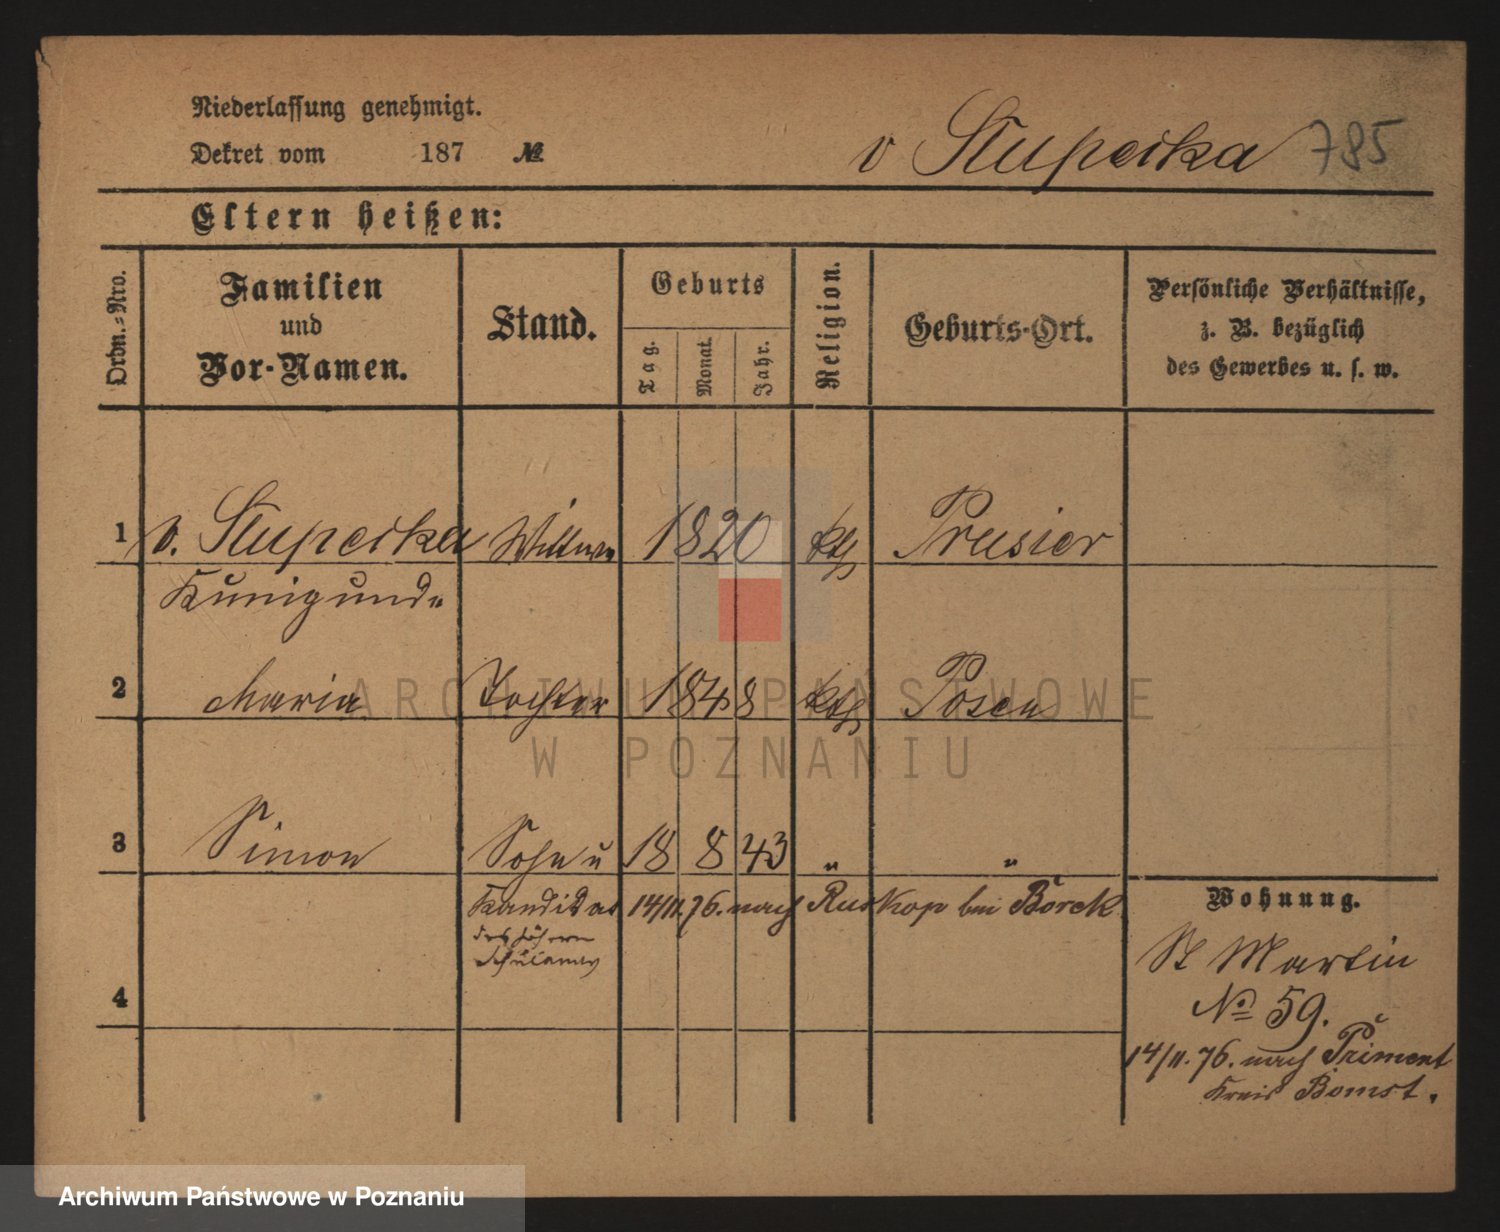 Niederlassung genehmigt.
Dekret vom 187 №
v Slupecka 785
Eltern heißen:
Ordn.-Nro.
Familien
und
Vor-Namen.
Stand.
Geburts
Tag.
Monat.
Jahr.
Religion.
Geburts-Ort.
Persönliche Verhältnisse,
z. B. bezüglich
des Gewerbes u. s. w.
1 v. Slupecka Wittwe 1820 kth
Kunigunde
2 Maria Tochter 1848 kth Posen
3 Simon Sohn u 18 8 43 " "
Kandidat 14/11. 76. nach bei Borek
des höhern
4
Wohnung.
St Martin
No 59.
14/11. 76. nach Priment
Kreis Bomst.
ARCHIWUM PAŃSTWOWE
W POZNANIU
Archiwum Państwowe w Poznaniu